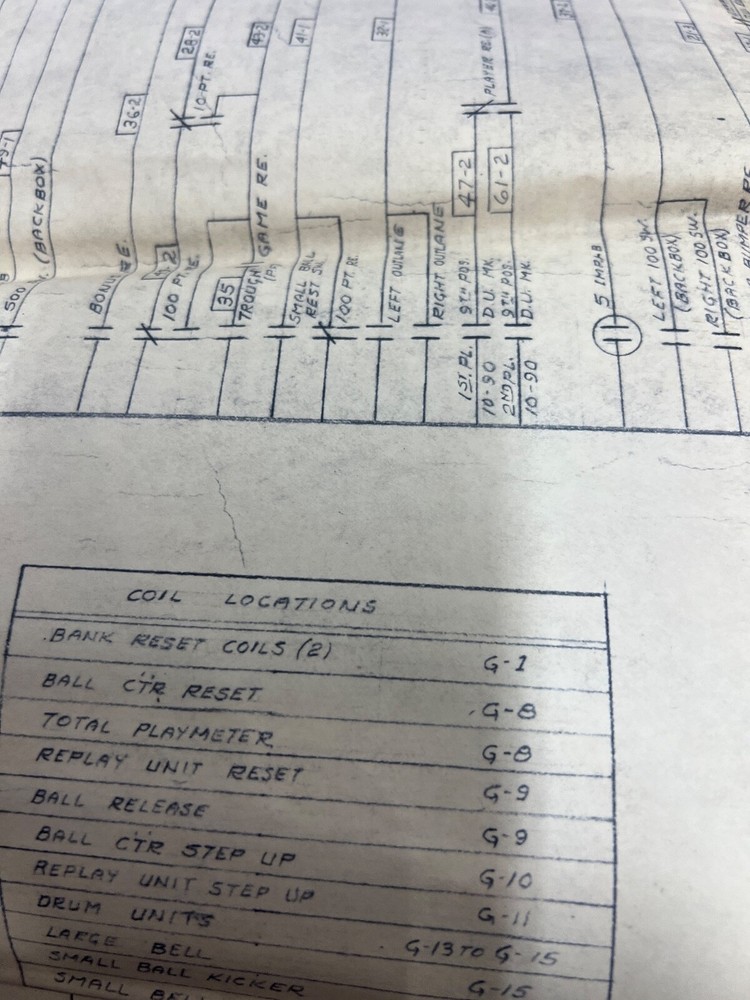 28-2
43-2
41-1
32-1
10 PT. RE.
PLAYER RE(A)
36-2
47-2
61-2
500
(BACKBOX)
RE.
100 PT.
35
TROUGH
GAME RE.
SMALL BALL
REST SW.
100 PT. RE.
LEFT OUTLANE
RIGHT OUTLANE
9TH POS.
D.U. MK.
9TH POS.
D.U. MK.
5
LEFT 100 SW.
(BACKBOX)
RIGHT 100 SW.
(BACKBOX)
1ST. PL.
10-90
2ND PL.
10-90
COIL LOCATIONS
BANK RESET COILS (2) G-1
BALL CTR RESET G-8
TOTAL PLAYMETER G-8
REPLAY UNIT RESET G-9
BALL RELEASE G-9
BALL CTR STEP UP G-10
REPLAY UNIT STEP UP G-11
DRUM UNITS G-13 TO G-15
LARGE BELL G-15
SMALL BALL KICKER
SMALL BELL